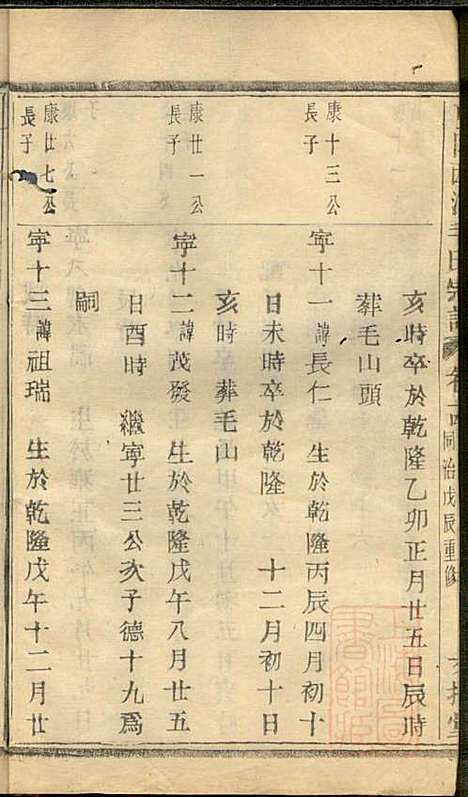 宗譜
卷
同治戊辰重修
亥時卒於乾隆乙卯正月廿五日辰時
葬毛山頭
康十三公長子
寧十一 諱長仁 生於乾隆丙辰四月初十
日未時卒於乾隆 十二月初十日
亥時葬毛山
康廿一公長子
寧十二 諱茂發 生於乾隆戊午八月廿五
日酉時 繼寧廿三公次子德十九為
嗣
康廿七公長子
寧十三 諱祖瑞 生於乾隆戊午十二月廿